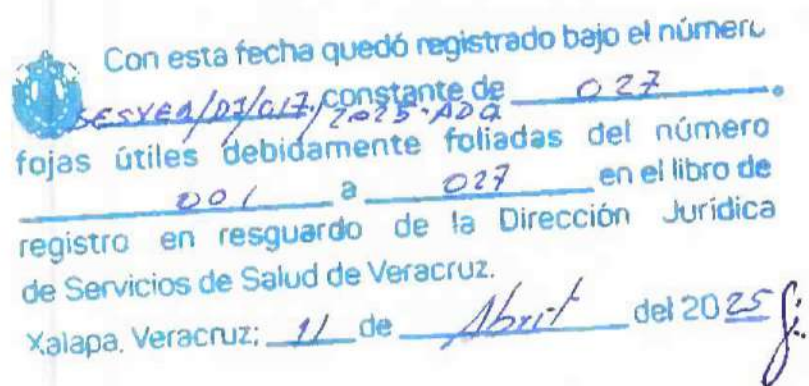 Con esta fecha quedó registrado bajo el número
SESVER/DJ/017/2025-ADQ constante de 027
fojas útiles debidamente foliadas del número
001 a 027 en el libro de
registro en resguardo de la Dirección Jurídica
de Servicios de Salud de Veracruz.
Xalapa, Veracruz; 11 de Abril del 2025